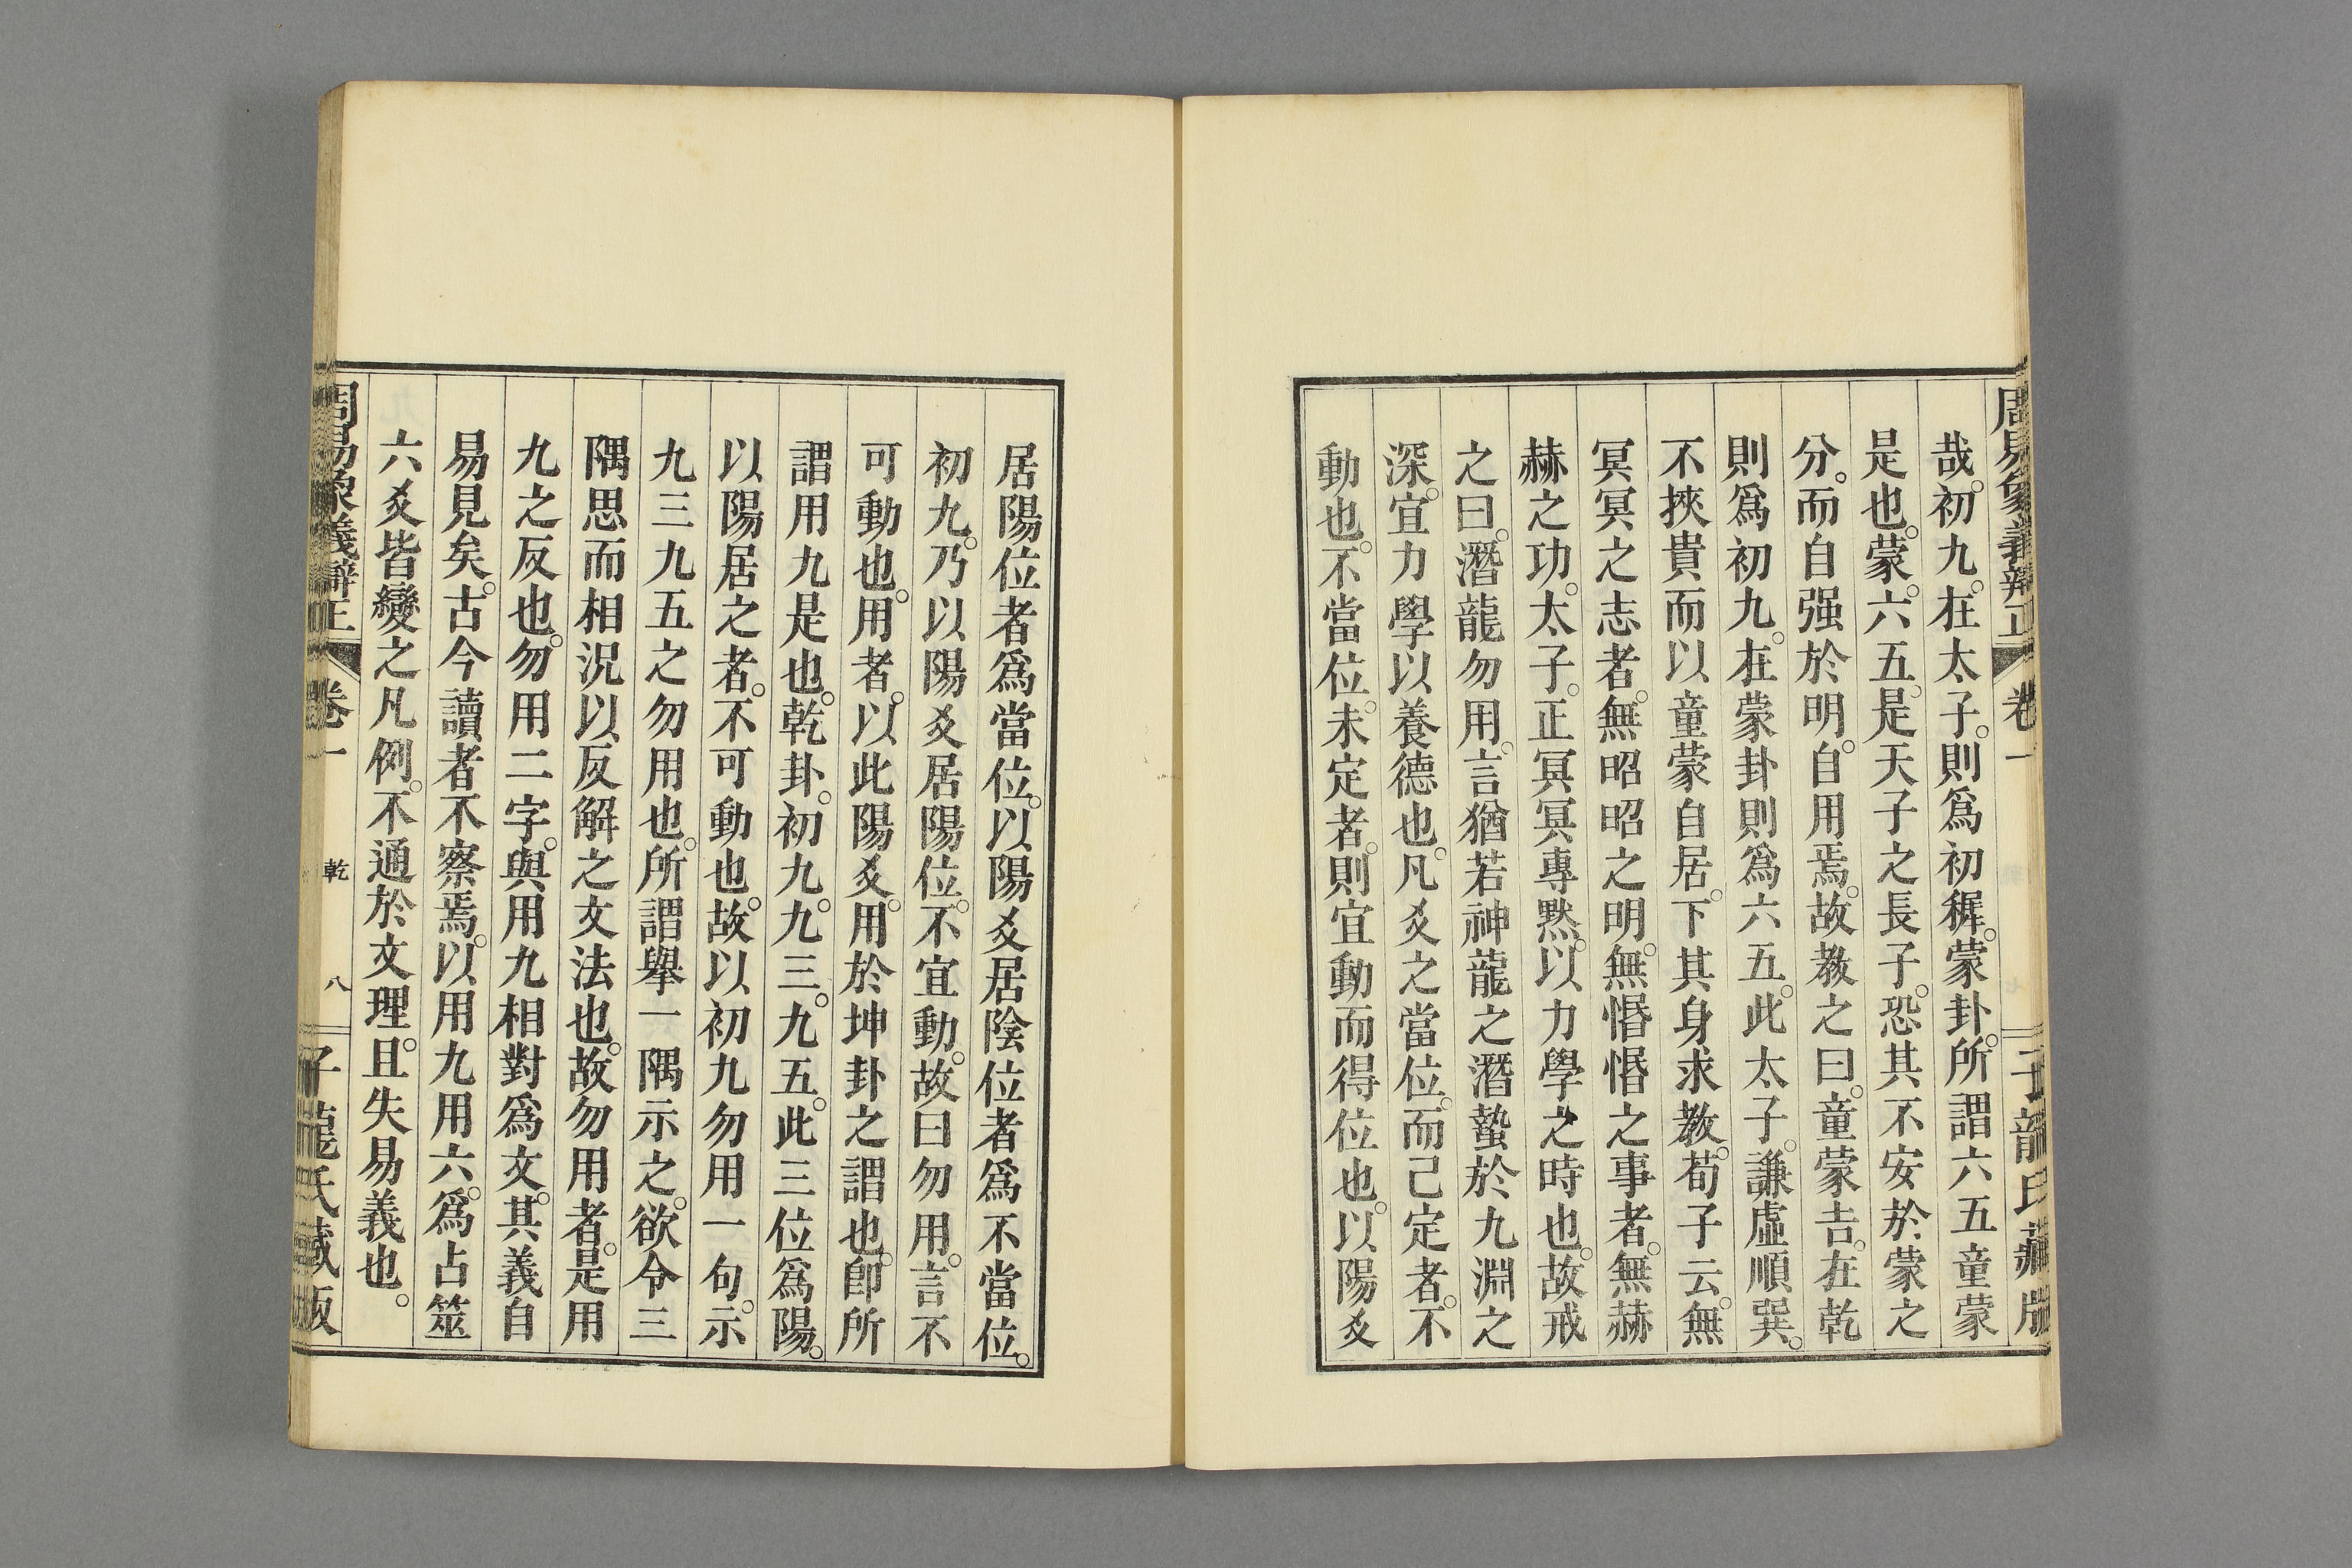 周易象義辯正　卷一　子龍氏藏版
哉。初九。在太子。則爲初穉。蒙卦。所謂六五童蒙
是也。蒙。六五。是天子之長子。恐其不安於蒙之
分。而自强於明。自用焉。故教之曰。童蒙吉。在乾
則爲初九。在蒙卦則爲六五。此太子。謙虛順巽。
不挾貴而以童蒙自居。下其身求教。荀子云。無
冥冥之志者。無昭昭之明。無惛惛之事者。無赫
赫之功。太子。正冥冥專默。以力學之時也。故戒
之曰。潛龍勿用。言猶若神龍之潛蟄於九淵之
深。宜力學以養德也。凡爻之當位。而己定者。不
動也。不當位。未定者。則宜動而得位也。以陽爻
居陽位者爲當位。以陽爻居陰位者爲不當位。
初九。乃以陽爻居陽位。不宜動。故曰勿用。言不
可動也。用者。以此陽爻。用於坤卦之謂也。卽所
謂用九是也。乾卦。初九。九三。九五。此三位爲陽。
以陽居之者。不可動也。故以初九勿用一句。示
九三九五之勿用也。所謂舉一隅示之。欲令三
隅思而相況以反解之文法也。故勿用者。是用
九之反也。勿用二字。與用九相對爲文。其義自
易見矣。古今讀者不察焉。以用九用六。爲占筮
六爻皆變之凡例。不通於文理。且失易義也。
周易象義辯正　卷一　乾　八　子龍氏藏版